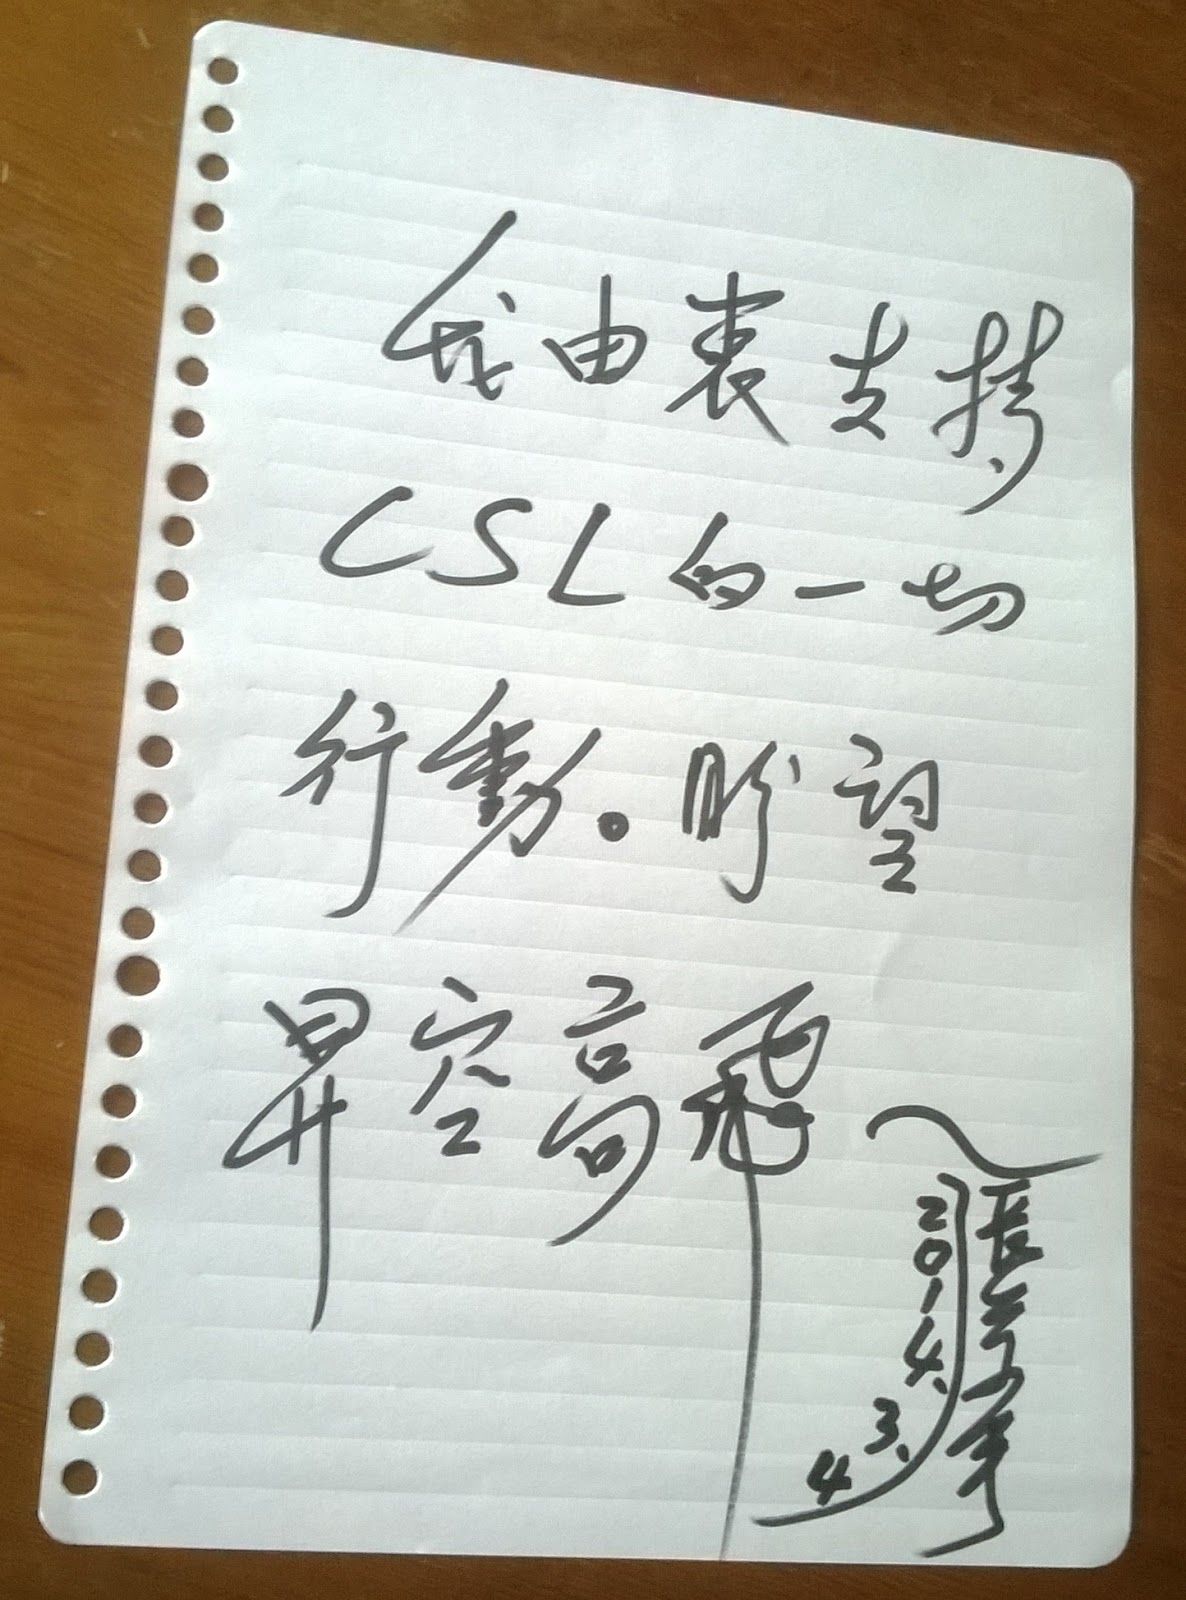 我由衷支持
CSL的一切
行動。盼望
昇空高飛~
2014.3.4